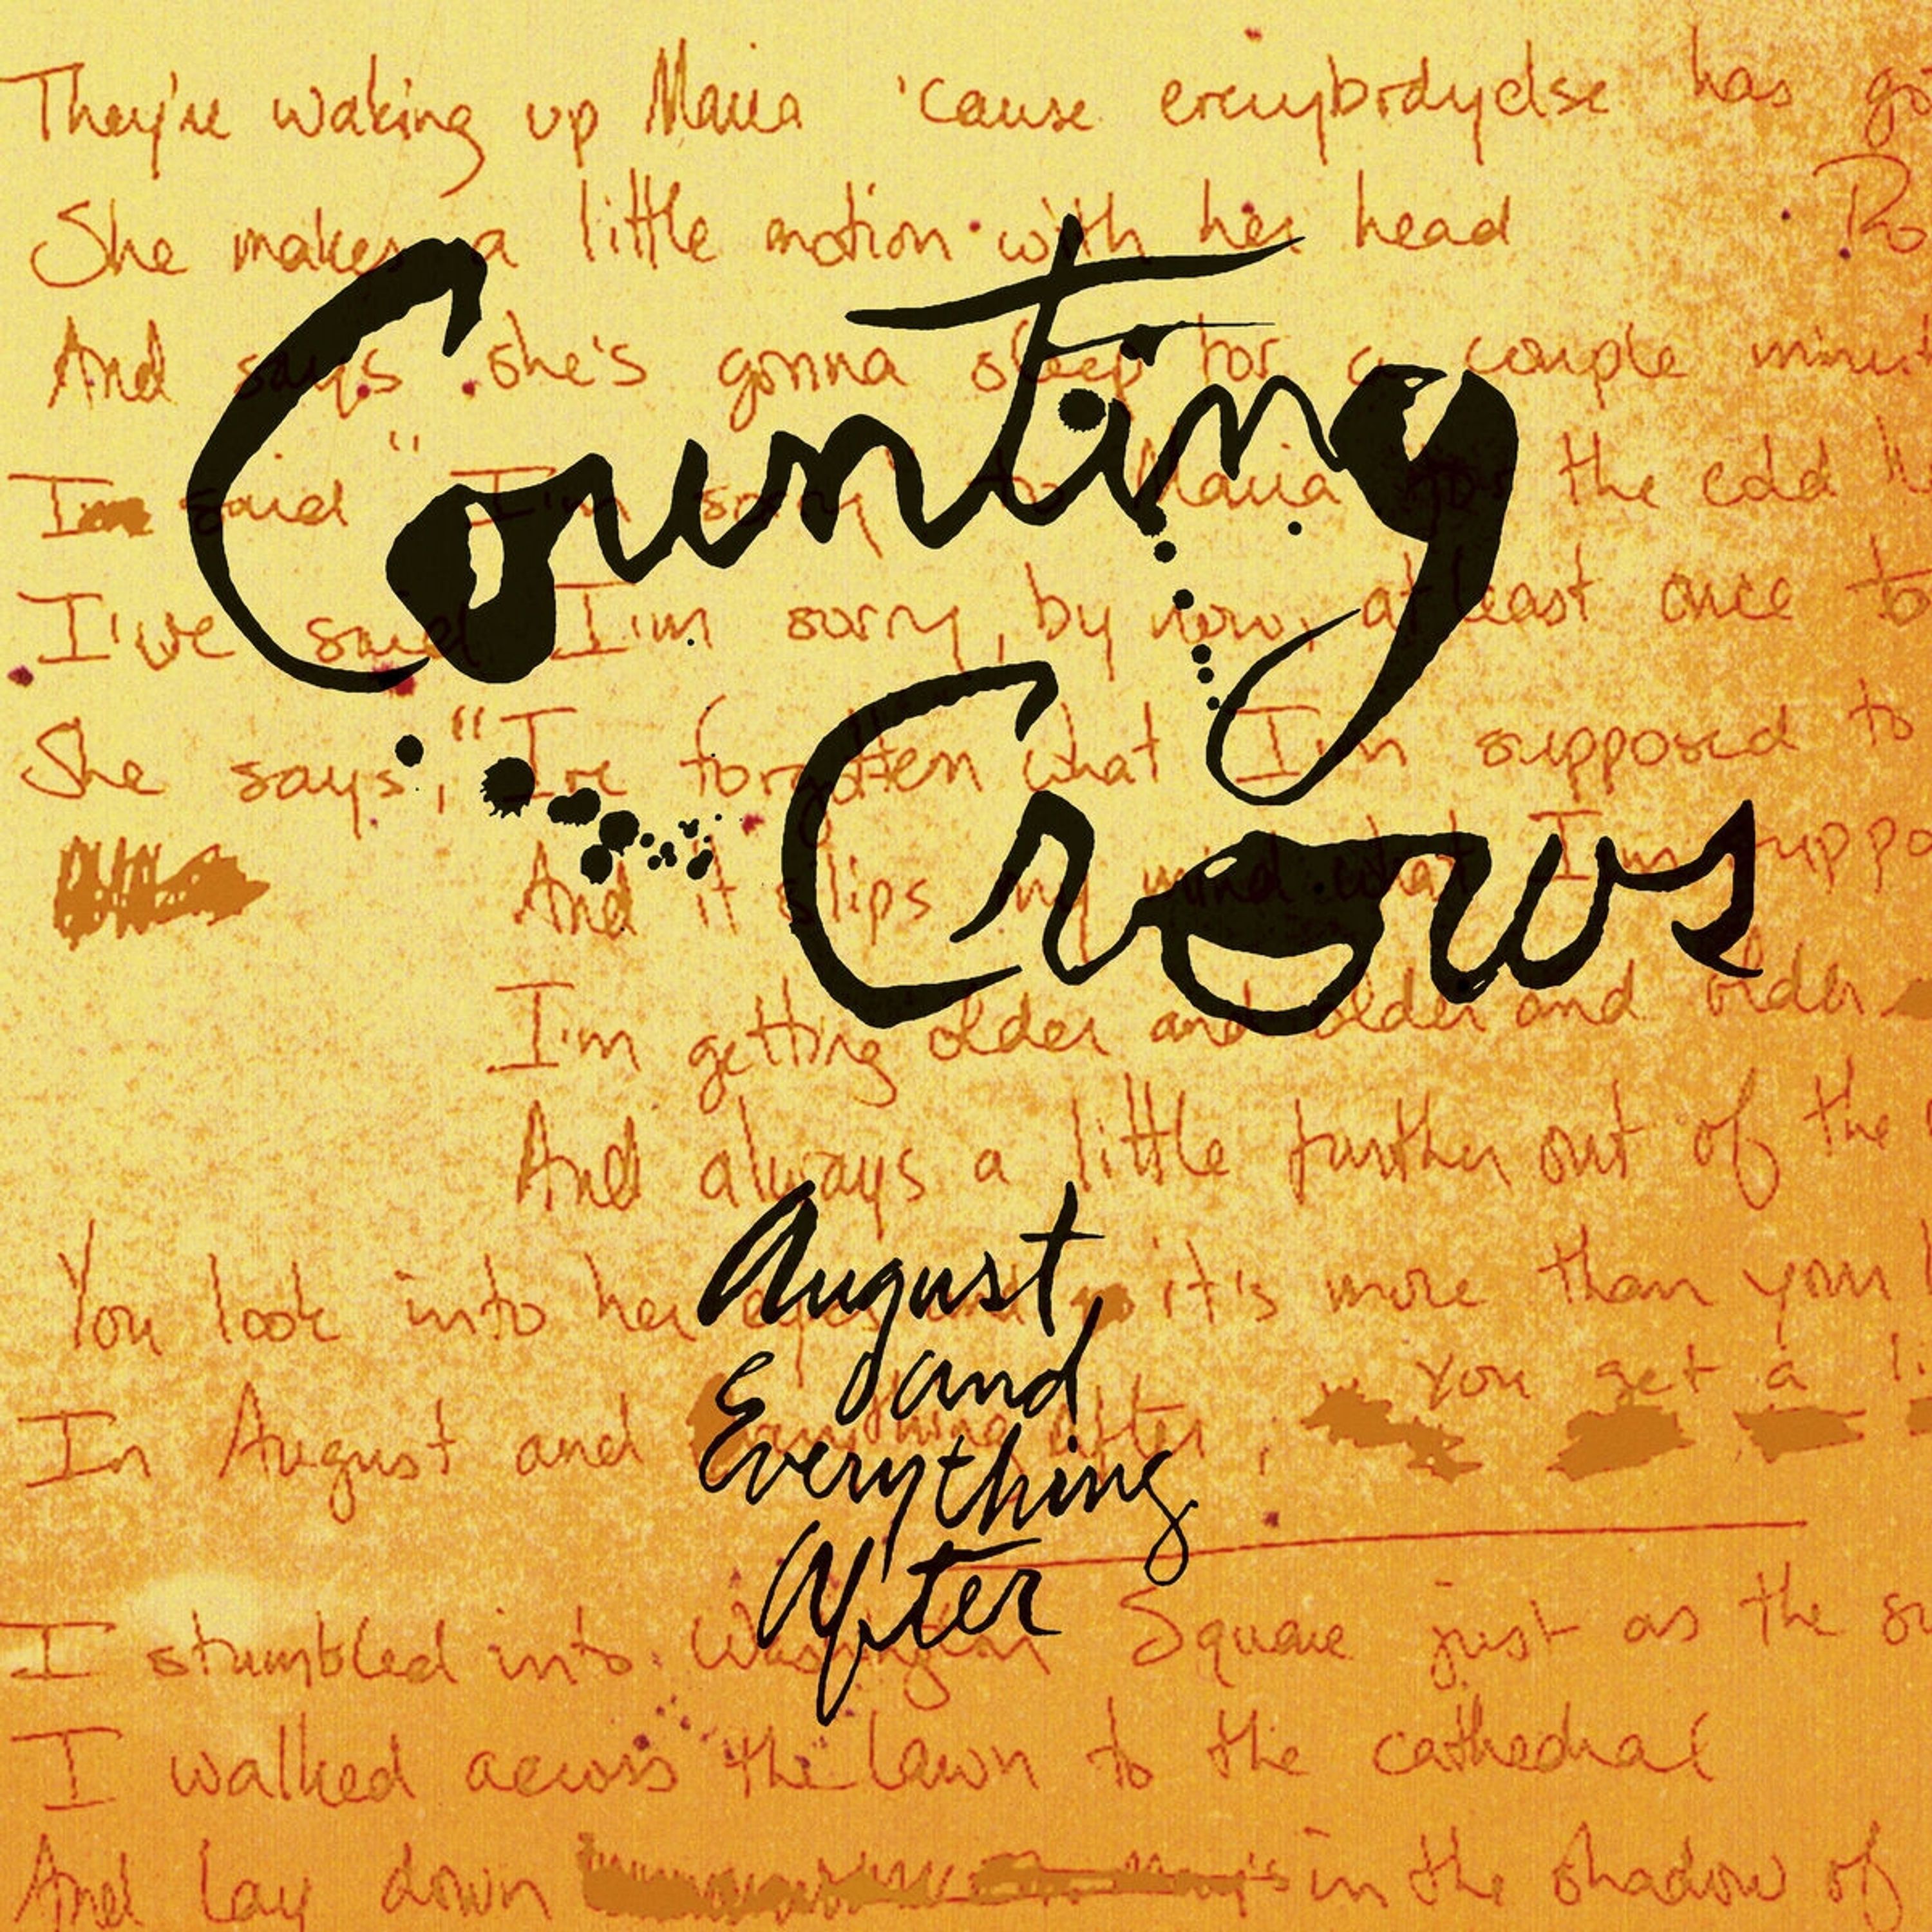 They're waking up Maria 'cause everybodyelse has go
She makes a little motion with her head
Ro
And says she's gonna sleep for a couple minut
Counting
I said "I'm sorry to Maria for the cold
I've said I'm sorry, by now, at least once to
She says, "I've forgotten what I'm supposed to
Crows
And it slips my mind what I'm suppo
I'm getting older and older and older
And always a little further out of the
August
and
Everything
After
You look into her eyes and it's more than your
You get a
In August and Everything After,
I stumbled into Washington Square just as the su
I walked across the lawn to the cathedral
And lay down in the shadow of